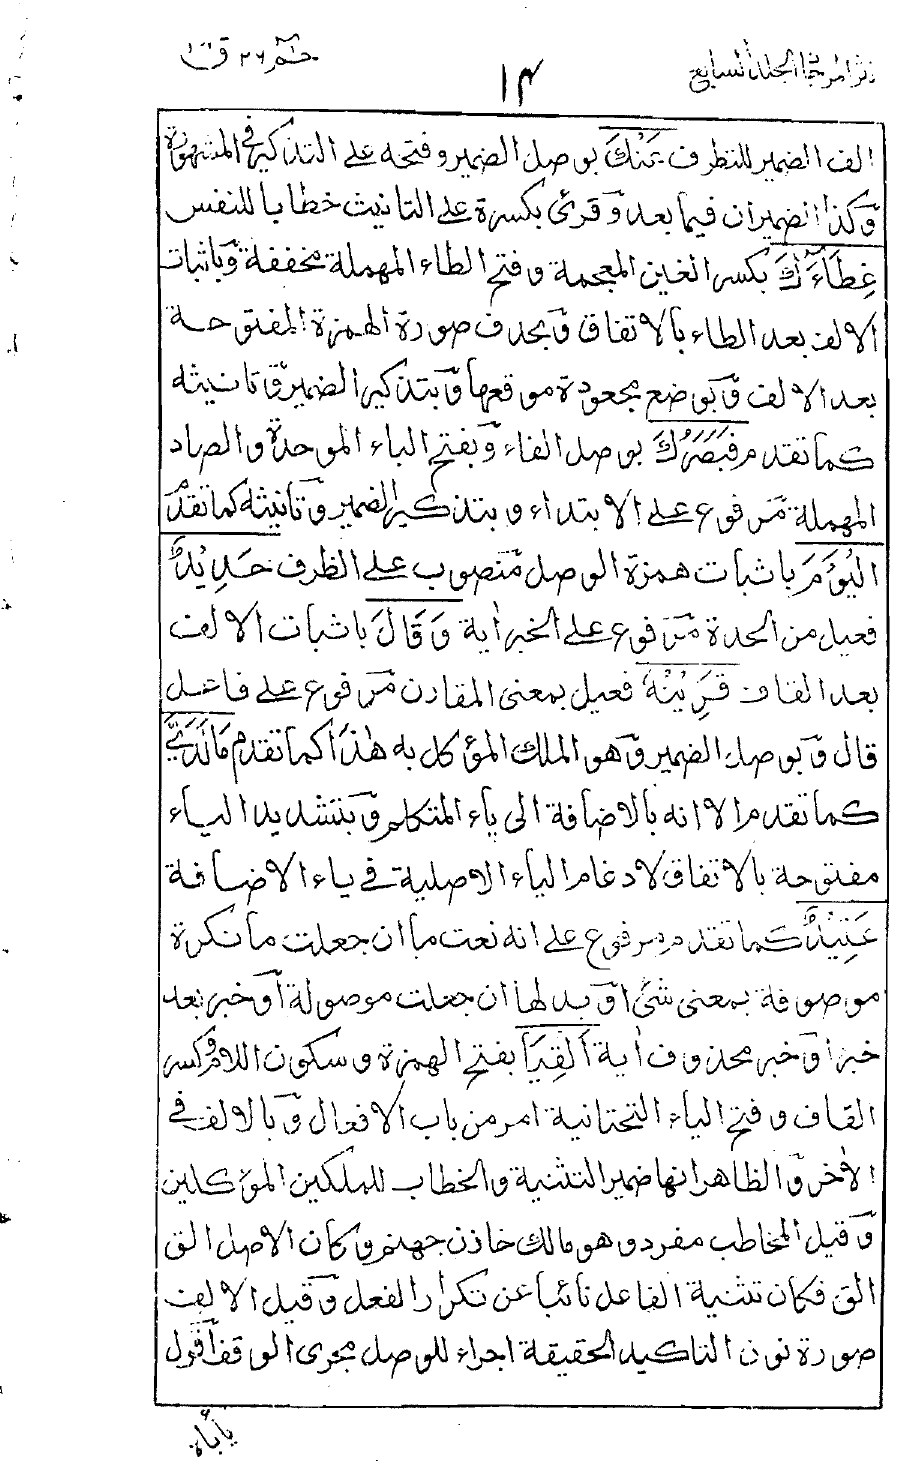 نثر المرجان الجلد السابع
١٤
حٰم ٢٦ ق
الف الضمير للتطرف عَنْكَ بوصل الضمير و فتحه على التذكير فى المشهورة
وَكذا الضميران فيما بعد وَقرئ بكسرة على التانيث خطابا للنفس
غِطَآءَكَ بكسر الغين المعجمة و فتح الطاء المهملة مخففة وَباثبات
الالف بعد الطاء بالاتفاق وَبحذف صورة الهمزة المفتوحة
بعد الالف وَبوضع مجعودة موقعها وَبتذكير الضمير وَتانيثه
كما تقدم فَبَصَرُكَ بوصل الفاء وَبفتح الباء الموحدة و الصاد
المهملة مَرفوع على الابتداء و بتذكير الضمير وَتانيثه كما تقدم
الْيَوْمَ باثبات همزة الوصل مَنصوب على الظرف حَدِيْدٌ
فعيل من الحدة مَرفوع على الخبر اٰية وَقَالَ باثبات الالف
بعد القاف قَرِيْنُهٗ فعيل بمعنى المقارن مَرفوع على فاعل
قال وَبوصل الضمير وَهو الملك المؤكل به هٰذَا كما تقدم مَا لَدَيَّ
كما تقدم الا انه بالاضافة الى ياء المتكلم وَبتشديد الياء
مفتوحة بالاتفاق لادغام الياء الاصلية فى ياء الاضافة
عَتِيْدٌ كما تقدم مرفوع على انه نعت ما ان جعلت ما نكرة
موصوفة بمعنى شئ اوَ بدلها ان جعلت موصولة اَو خبر بعد
خبر اوَ خبر محذوف اٰية اَلْقِيَا بفتح الهمزة و سكون اللام وَكسر
القاف و فتح الياء التحتانية امر من باب الافعال وَبالالف فى
الاٰخر وَالظاهر انها ضمير التثنية والخطاب للملكين المؤكلين
وَقيل المخاطب مفرد و هو مالك خازن جهنم وَكان الاصل الق
الق فكان تثنية الفاعل نائبا عن تكرار الفعل وَقيل الالف
صورة نون التاكيد الحقيقة اجراء للوصل مجرى الوقف اَقول
يأباه